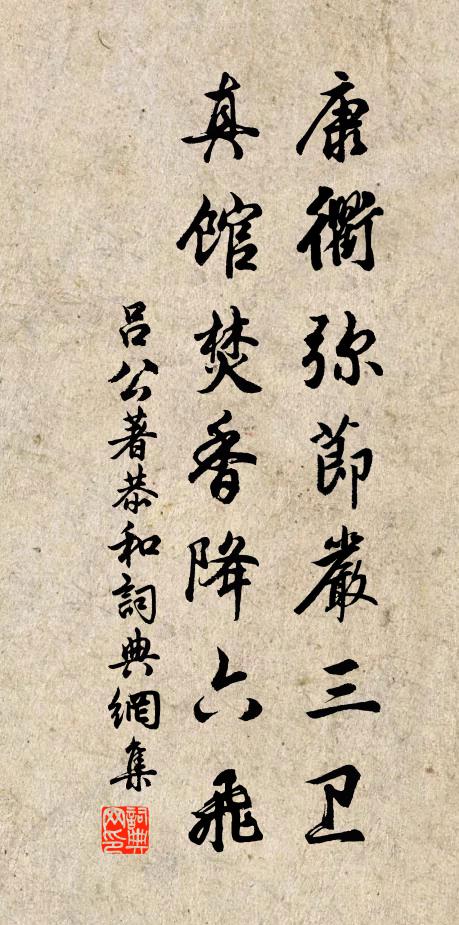 康衢弥節嚴三卫
真馆焚香降六飛
吕公著恭和詞典網集
詞典网印